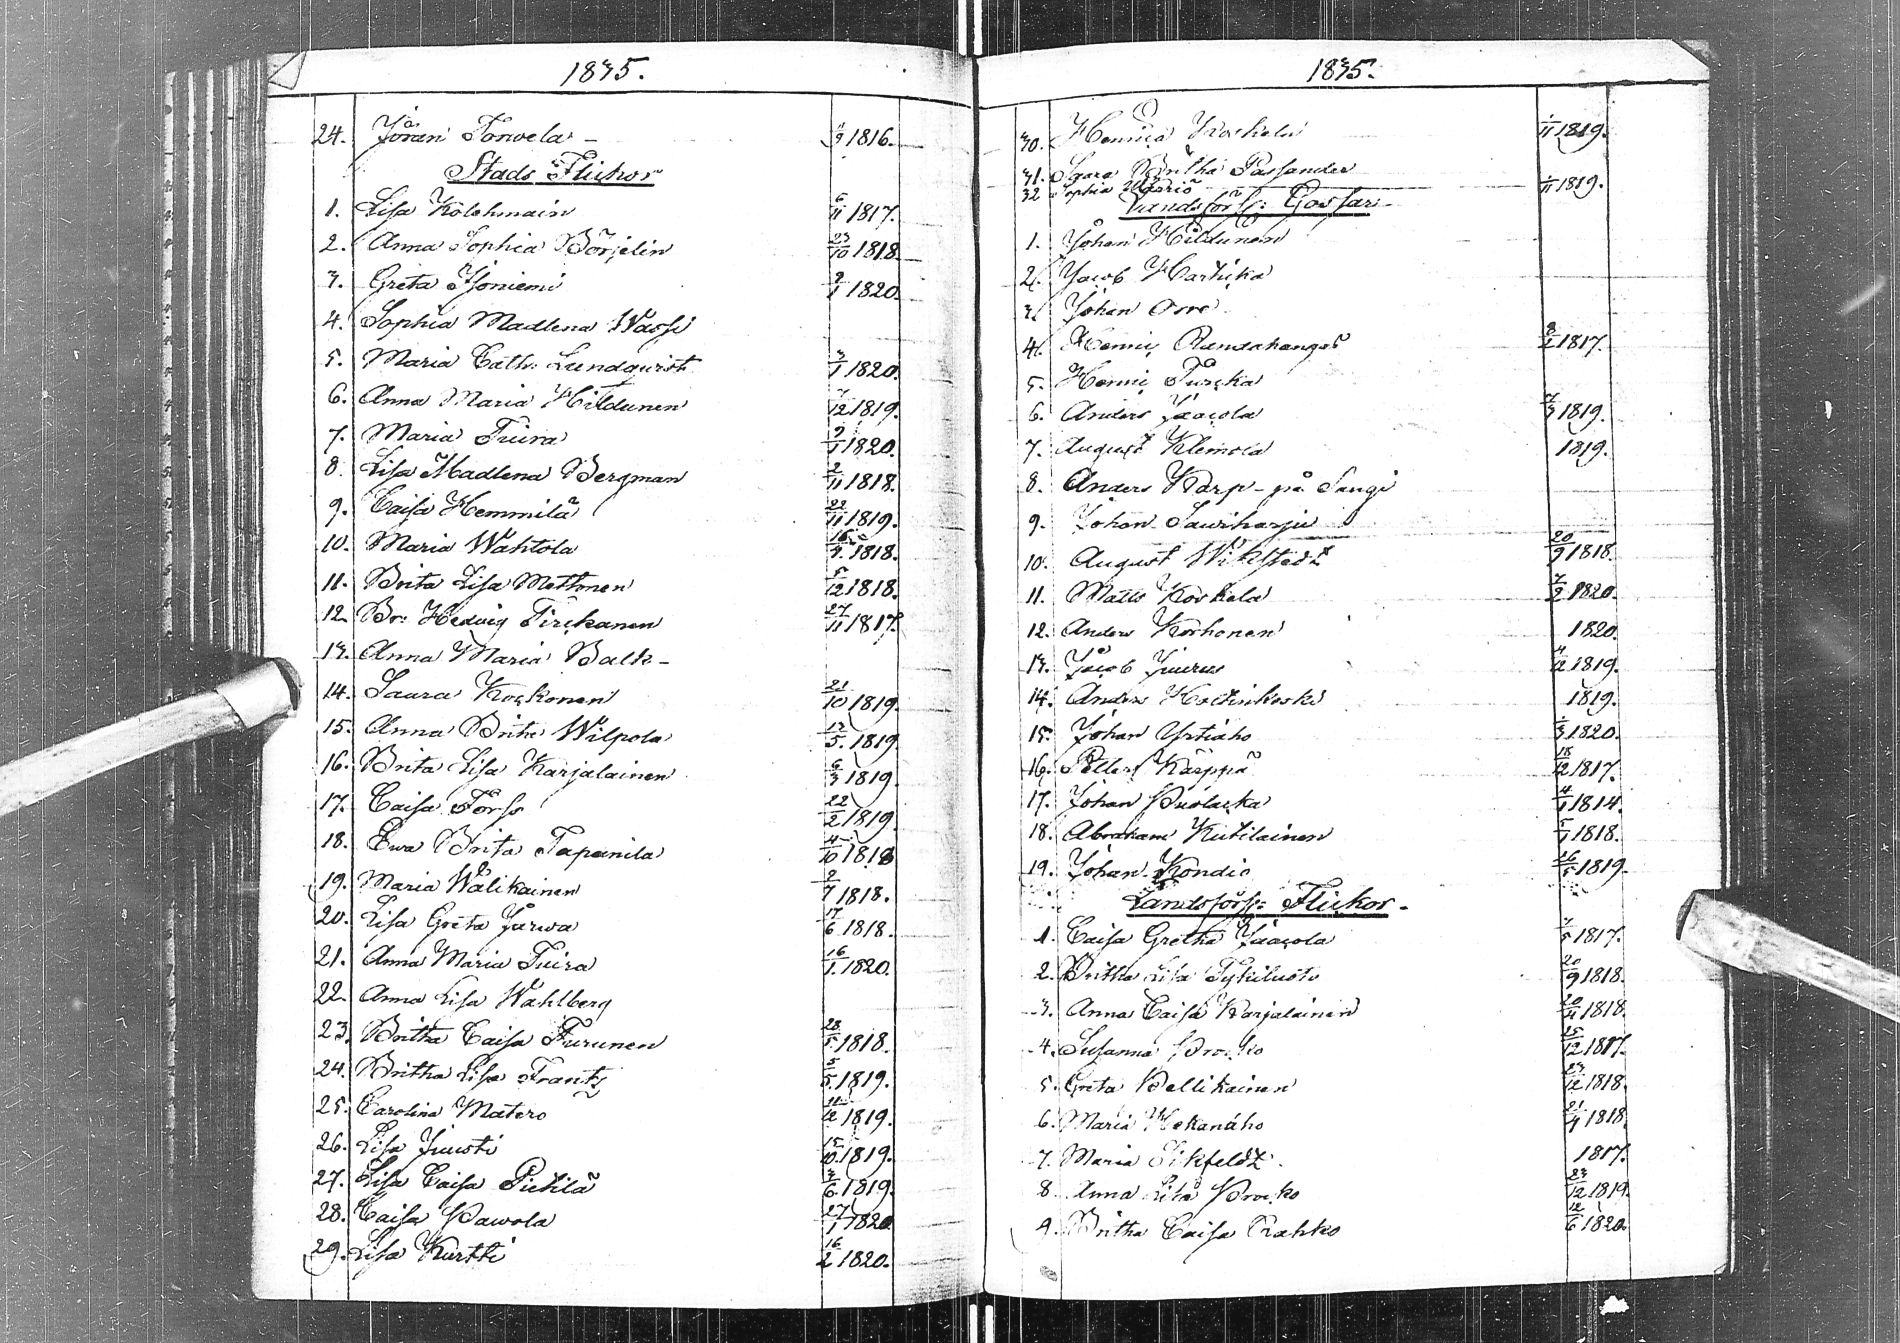 1835.
24. Jöran Torvela - 9 1816.
Stads Flickor
1. Lisa Kolehmain 6/11 1817.
2. Anna Sophia Börjelin 23/10 1818.
3. Greta Ijoniemi 2/1 1820.
4. Sophia Madlena Wassi
5. Maria Cath: Lundqvist 3/1 1820.
6. Anna Maria Hildunen 7/12 1819.
7. Maria Tuira 9/1 1820.
8. Lisa Madlena Bergman 2/11 1818.
9. Caisa Hemmilä 22/11 1819.
10. Maria Wahtola 16/9 1818.
11. Brita Lisa Mettonen 5/12 1818.
12. Br: Hedvig Tirckanen 27/11 1817.
13. Anna Maria Balk -
14. Saara Kockonen 21/10 1819.
15. Anna Brita Wilpola 12/5 1819.
16. Brita Lisa Karjalainen 6/3 1819.
17. Caisa Forss 22/2 1819.
18. Ewa Brita Tapanila 4/10 1818
19. Maria Wälikainen 2/7 1818.
20. Lisa Greta Jarwa 17/6 1818.
21. Anna Maria Tuira 16/1 1820.
22. Anna Lisa Wahlberg
23. Britha Caisa Turunen 28/5 1818.
24. Britha Lisa Frantz 5/5 1819.
25. Carolina Matero 11/12 1819.
26. Lisa Juusti 15/10 1819.
27. Lisa Caisa Pietilä 3/6 1819.
28. Caisa Pawola 27/1 1820
29. Lisa Kurtti 16/2 1820.
1835.
30. Henrica Koskela 1/11 1819.
31. Saara Britha Passander
32 Sophia 1/11 1819.
Landsförs: Gossar -
1. Johan Hildunen
2. Jacob Harticka
3. Johan Orre
4. Henric Rundahangas 8/2 1817.
5. Henric Turcka
6. Anders Jaacola 7/3 1819.
7. August Klemola 1819.
8. Anders Karp - på Sangi
9. Johan Sauriharju
10. August Wikstedt 20/9 1818.
11. Matts Koskela 7/2 1820.
12. Anders Korhonen 1820.
13. Jacob Juurus 4/12 1819.
14. Anders Hoikinkoski 1819.
15. Johan Yrtiaho 1/3 1820.
16. Petter Kärppä 18/12 1817.
17. Johan Puolacka 4/1 1814.
18. Abraham Kutilainen 5/1 1818.
19. Johan Kondio 26/5 1819.
Landsförs: Flickor -
1. Caisa Gretha Jaacola 7/5 1817.
2. Britha Lisa Tykiluoto 20/9 1818.
3. Anna Caisa Karjalainen 20/11 1818.
4. Susanna Procko 15/12 1817.
5. Greta Pellikainen 23/12 1818.
6. Maria Hekanaho 21/4 1818.
7. Maria Sikfeldt. 1817.
8. Anna Lisa Procko 23/12 1819.
9. Britha Caisa Rahko 12/6 1820